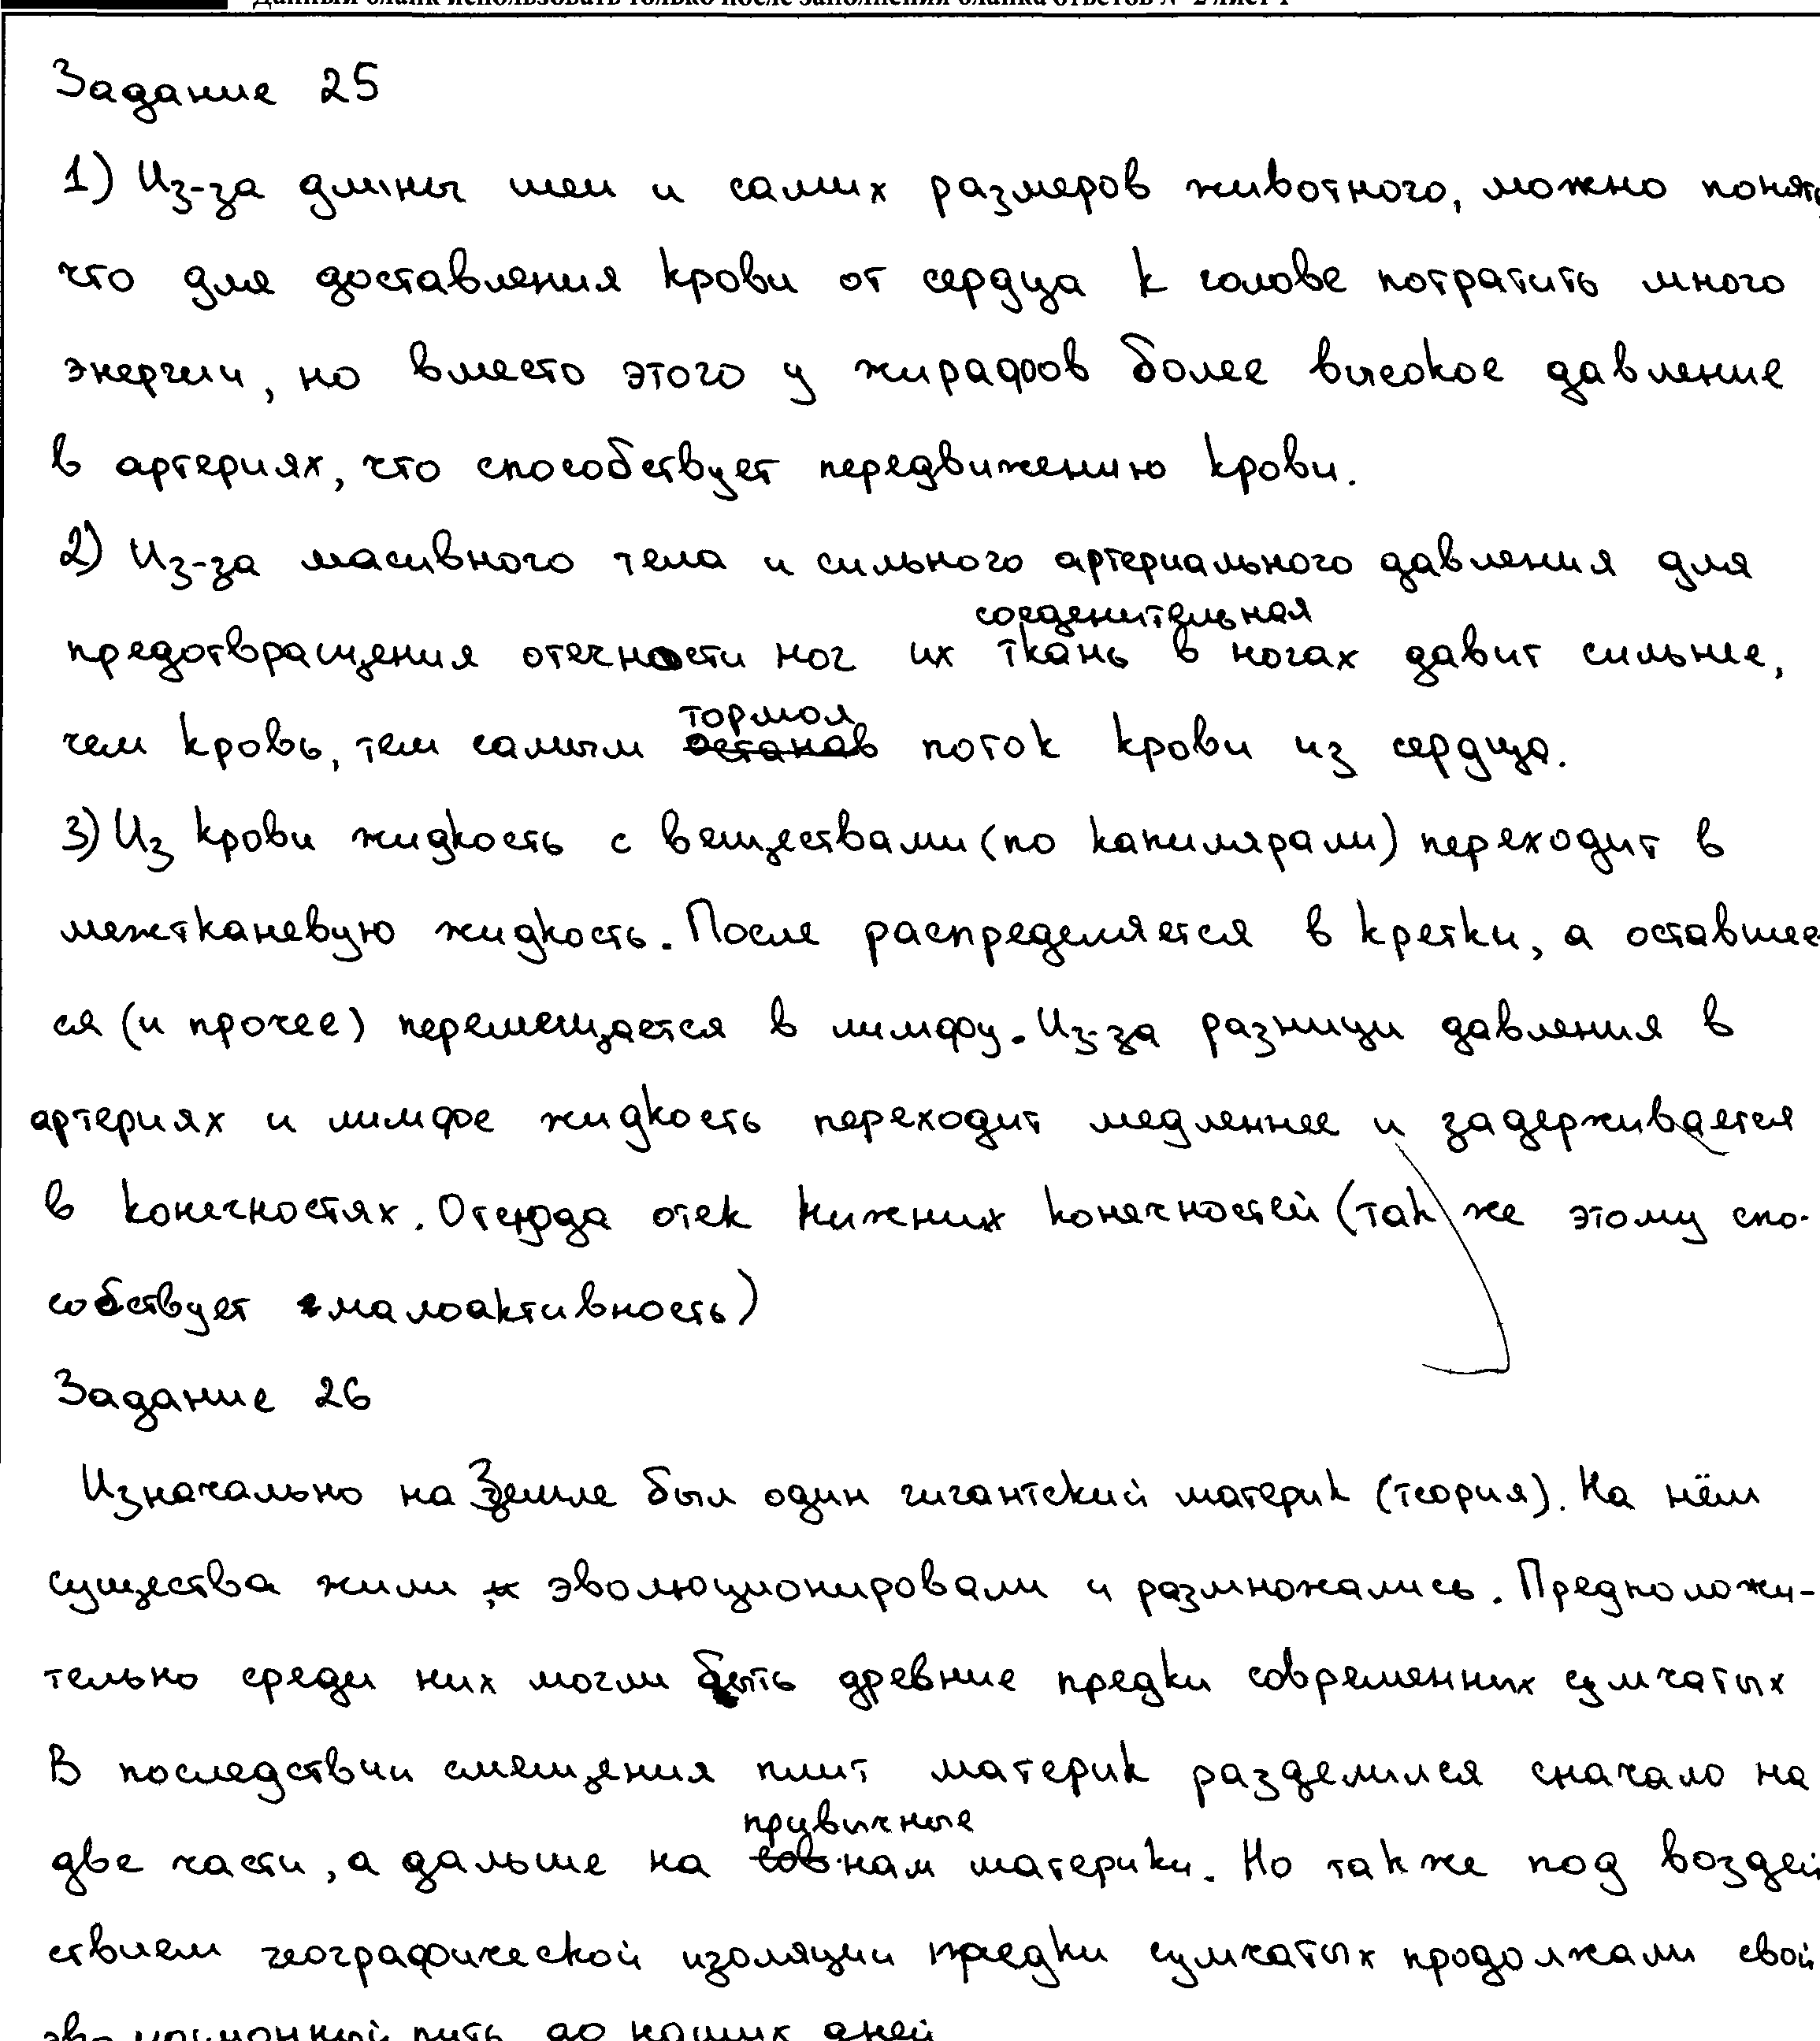 Данный бланк использовать только после заполнения бланка ответов № 2 лист 1
Задание 25
1) Из-за длины шеи и самих размеров животного, можно понять
что для доставления крови от сердца к голове потратить много
энергии, но вместо этого у жирафов более высокое давление
в артериях, что способствует передвижению крови.
2) Из-за масивного тела и сильного артериального давления для
соеденительная
предотвращения отечности ног их ткань в ногах давит сильнее,
тормозя
чем кровь, тем самым останав поток крови из сердца.
3) Из крови жидкость с веществами (по капилярами) переходит в
межтканевую жидкость. После распределяется в кретки, а оставшее
ся (и прочее) перемещается в лимфу. Из-за разници давления в
артериях и лимфе жидкость переходит медленнее и задерживается
в конечностях. Отсюда отек нижних конечностей (так же этому спо-
собствует малоактивность)
Задание 26
Изначально на Земле был один гигантский материк (теория). На нём
существа жили эволюционировали и размножались. Предположи-
тельно среди них могли быть древние предки современных сумчатых
В последствии смещения плит материк разделился сначало на
привычные
две части, а дальше на сов нам материки. Но так же под воздей
ствием географической изоляции предки сумчатых продолжали свой
эволюционный путь до наших дней